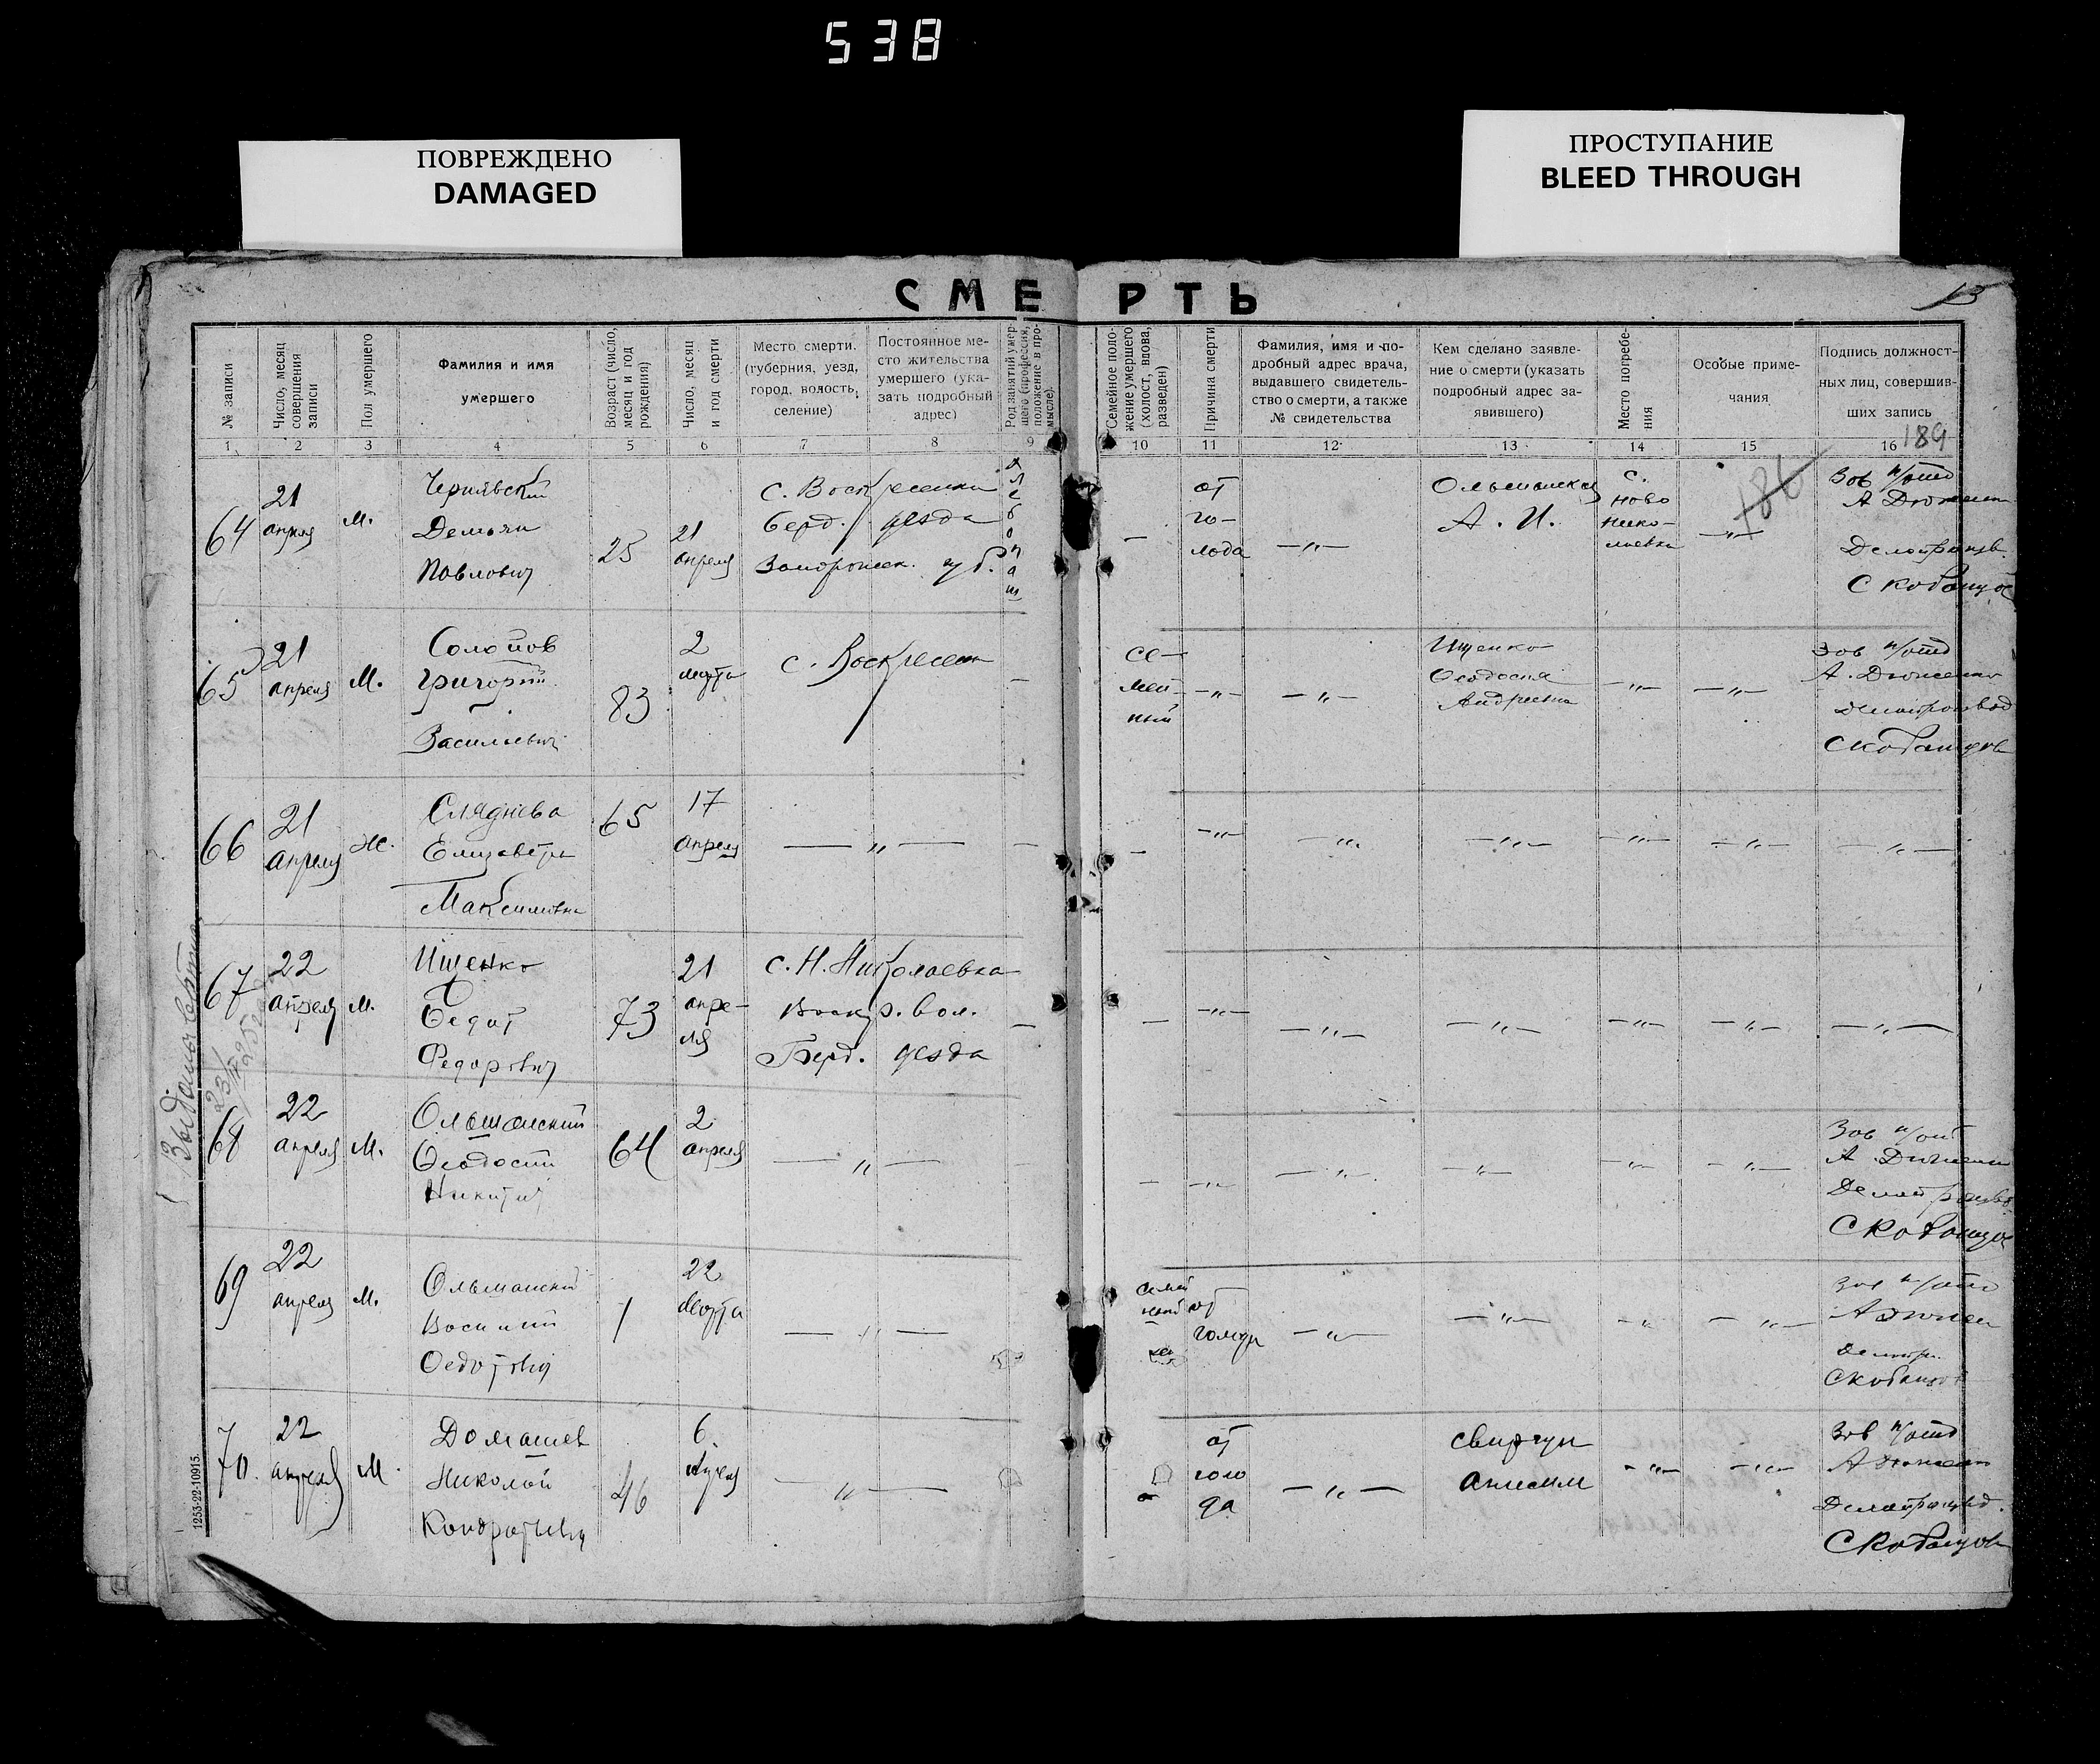 538
ПОВРЕЖДЕНО
DAMAGED
ПРОСТУПАНИЕ
BLEED THROUGH
СМЕРТЬ
13
№ записи
Число, месяц совершения записи
Пол умершего
Фамилия и имя умершего
Возраст (число, месяц и год рождения)
Число, месяц и год смерти
Место смерти. (губерния, уезд, город, волость, селение)
Постоянное место жительства умершего (указать подробный адрес)
Род занятий умершего (профессия, положение в промысле).
Семейное положение умершего (холост, вдова, разведен)
Причина смерти
Фамилия, имя и подробный адрес врача, выдавшего свидетельство о смерти, а также № свидетельства
Кем сделано заявление о смерти (указать подробный адрес заявившего)
Место погребения
Особые примечания
Подпись должностных лиц, совершивших запись
1 2 3 4 5 6 7 8 9 10 11 12 13 14 15 16
189
186
64
21 апреля
М.
Чернявский
Демьян
Павлович
25
21 апреля
с. Воскресенка
Берд. уезда
Запорожск. губ.
Хлебопаш
—
от го-
лода
—„—
Ольшанская
А. И.
с. Ново
Нико-
лаевка
—„—
Зав п/отд
Скобанцов
65
21 апреля
М.
Солопов
Григорий
Василиевич
83
2 марта
с. Воскресен
—
се-
мей-
ный
—„—
—„—
Ищенко
Феодосия
Андреевна
—„—
—„—
Зав п/отд
Скобанцов
66
21 апреля
Ж.
Сляднева
Елизавета
Максимовна
65
17 апреля
—„—
—
—
—„—
—„—
—„—
—„—
—„—
—„—
67
22 апреля
М.
Ищенко
Федот
Федорович
73
21 апре-
ля
с. Н. Николаевка
Воскр. вол.
Берд. уезда
—
—
—„—
—„—
—„—
—„—
—„—
—„—
68
22 апреля
М.
Ольшанский
Феодосий
Никитич
64
2 апреля
—„—
—
—„—
—„—
—„—
—„—
—„—
Зав п/отд
Скобанцов
69
22 апреля
М.
Ольшанский
Василий
Федотович
1
22 марта
—„—
семей
ный
от
голода
—„—
—„—
—„—
—„—
Зав п/отд
Скобанцов
70.
22 апреля
М.
Домашев
Николай
Кондратьевич
46
6 апреля
—„—
от
голо
да
—„—
Свиргун
Анисим
—„—
—„—
Зав п/отд
Скобанцов
1253-22-10915.